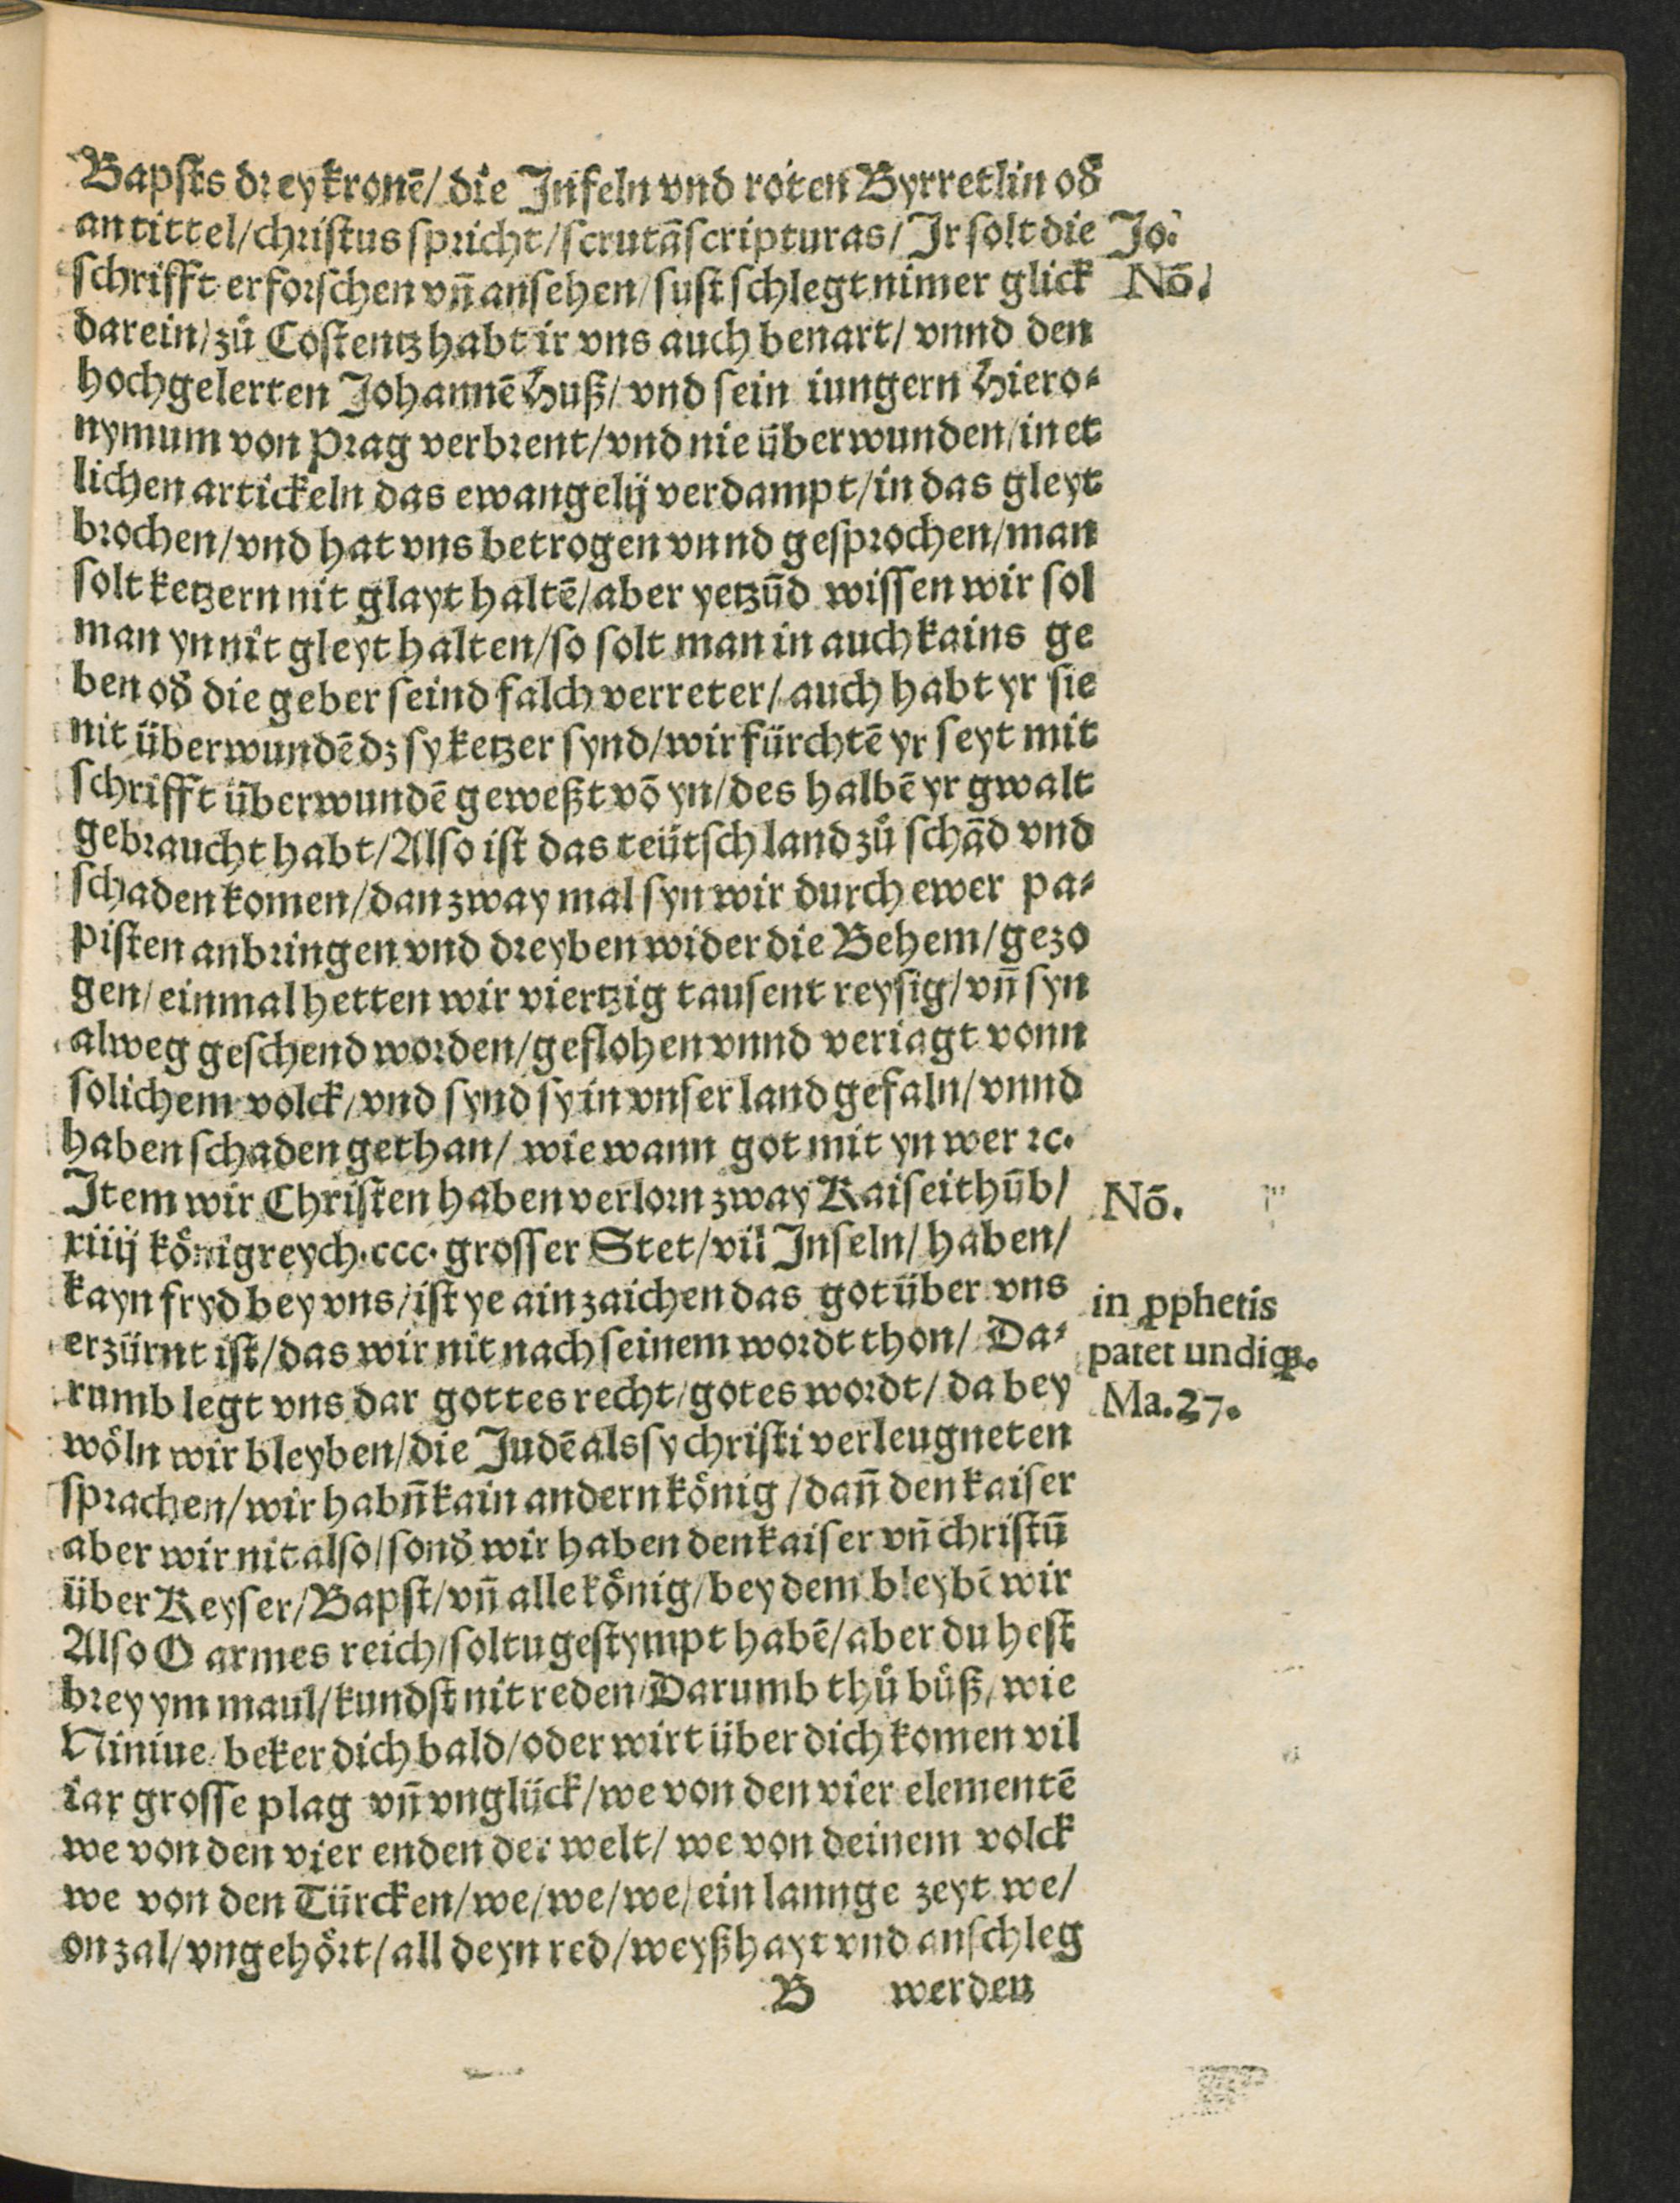 Bapsts drey kronē/ die Jnfeln vnd roten Byrretlin od̕
an tittel/ christus spricht/ scrutā scripturas/ Jr solt die Jo.
schrifft erforschen vn̄ ansehen/ sust schlegt nimer glick Nō.
darein/ zů Costentz habt ir vns auch benart/ vnnd den
hochgelerten Johannē Huß/ vnd sein iungern Hiero⸗
nymum von Prag verbrent/ vnd nie überwunden/ in et
lichen artickeln das ewangelij verdampt/ in das gleyt
brochen/ vnd hat vns betrogen vnnd gesprochen/ man
solt ketzern nit glayt haltē/ aber yetzūd wissen wir sol
man yn nit gleyt halten/ so solt man in auch kains ge
ben od̕ die geber seind falch verreter/ auch habt yr sie
nit überwundē dz sy ketzer synd/ wir fürchtē yr seyt mit
schrifft überwundē geweßt vō yn/ des halbē yr gwalt
gebraucht habt/ Also ist das teütsch land zů schād vnd
schaden komen/ dan zway mal syn wir durch ewer pa⸗
pisten anbringen vnd dreyben wider die Behem/ gezo
gen/ einmal hetten wir viertzig tausent reysig/ vn̄ syn
alweg geschend worden/ geflohen vnnd veriagt vonn
solichem volck/ vnd synd sy in vnser land gefaln/ vnnd
haben schaden gethan/ wie wann got mit yn wer ⁊c.
Jtem wir Christen haben verlorn zway Kaiseithūb/ Nō.
xiiij königreych. ccc. grosser Stet/ vil Jnseln/ haben/
kayn fryd bey vns/ ist ye ain zaichen das got über vns
in ꝓphetis
erzürnt ist/ das wir nit nach seinem wordt thon/ Da⸗
patet undiqꝫ.
rumb legt vns dar gottes recht/ gotes wordt/ da bey
Ma.27.
wöln wir bleyben/ die Judē als sy christi verleugneten
sprachen/ wir habn̄ kain andern könig/ dan̄ den kaiser
aber wir nit also/ sond̕ wir haben den kaiser vn̄ christū
über Keyser/ Bapst/ vn̄ alle könig/ bey dem bleybē wir
Also O armes reich/ soltu gestympt habē/ aber du hest
brey ym maul/ kundst nit reden/ Darumb thů bůß/ wie
Niniue beker dich bald/ oder wirt über dich komen vil
iar grosse plag vn̄ vnglück/ we von den vier elementē
we von den vier enden der welt/ we von deinem volck
we von den Türcken/ we/ we/ we/ ein lannge zeyt we/
on zal/ vngehört/ all deyn red/ weyßhayt vnd anschleg
B werden